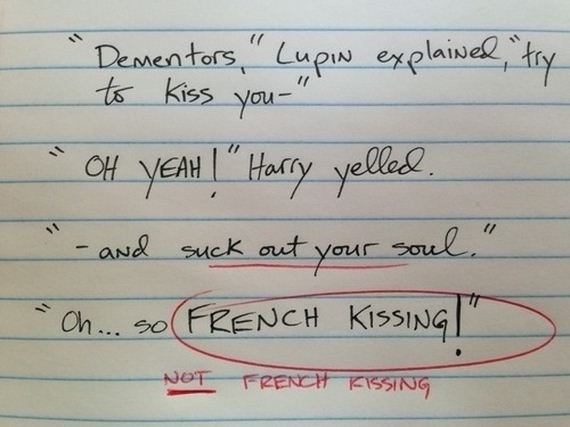 "Dementors," Lupin explained, "try
to kiss you-"
"OH YEAH!" Harry yelled.
"-and suck out your soul."
"Oh... so FRENCH KISSING!"
NOT FRENCH KISSING